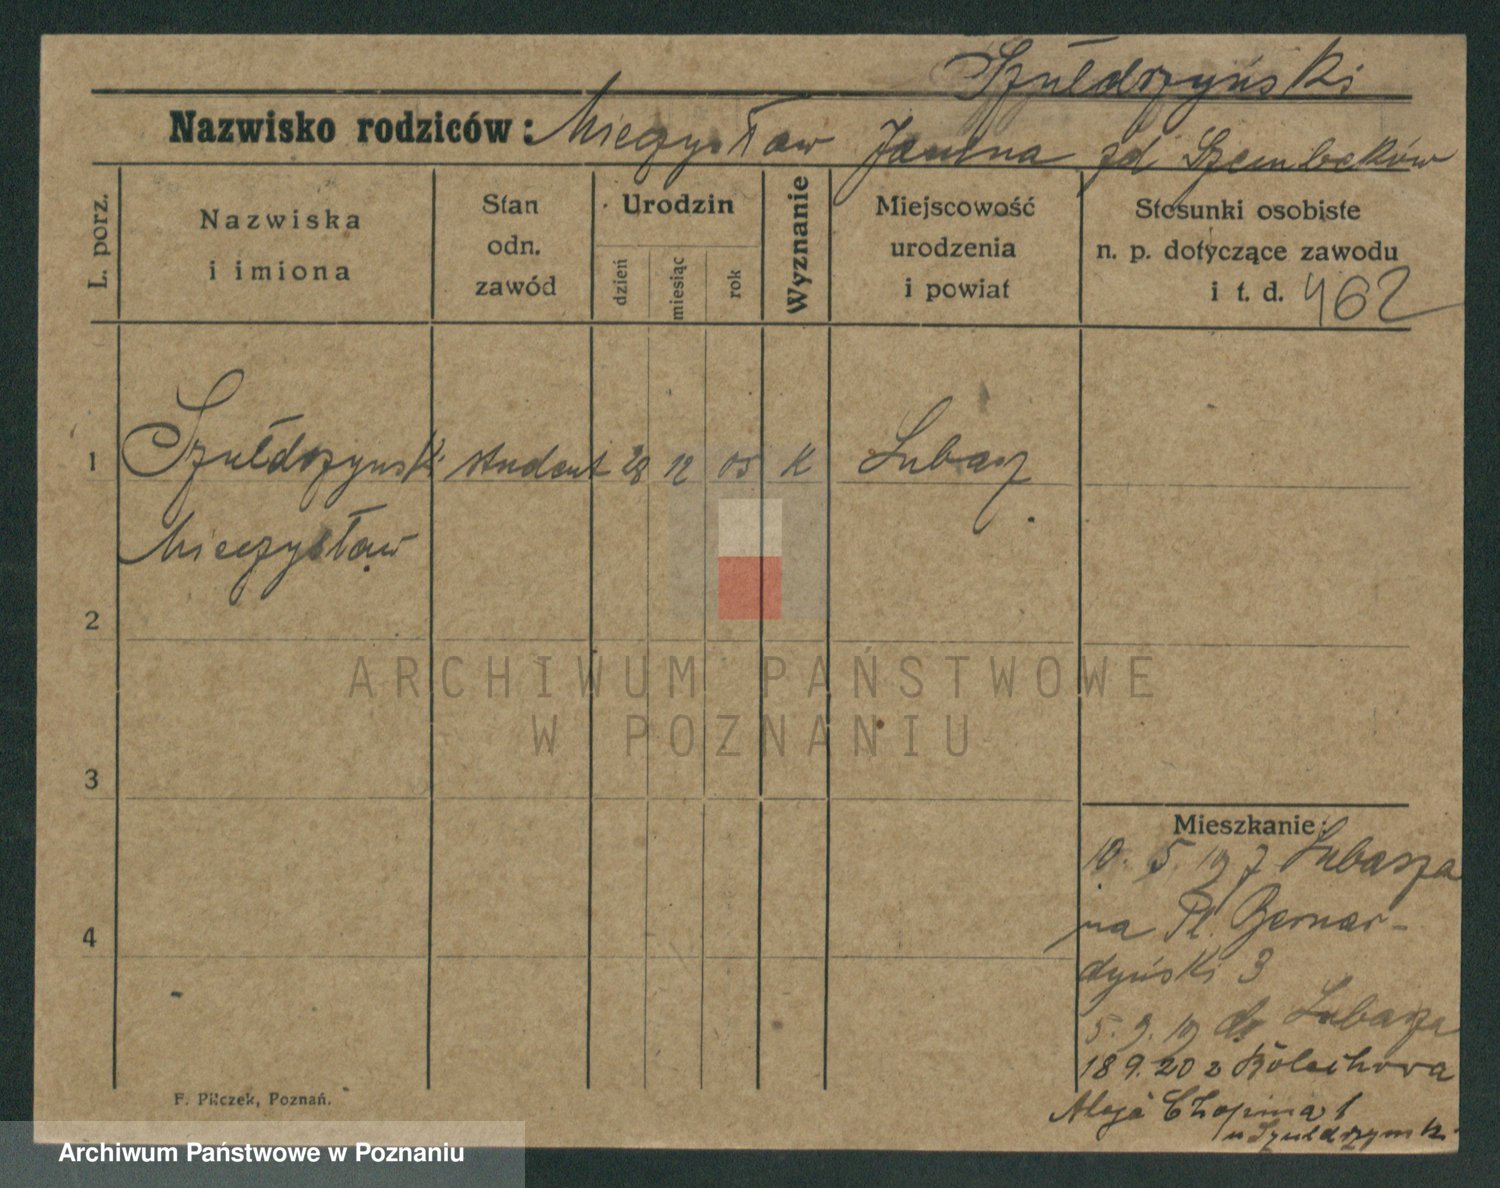 Szułdrzyński
Nazwisko rodziców: Mieczysław Janina zd Szembeków
L. porz.
Nazwiska
i imiona
Stan
odn.
zawód
Urodzin
dzień
miesiąc
rok
Wyznanie
Miejscowość
urodzenia
i powiat
Stosunki osobiste
n. p. dotyczące zawodu
i t. d. 462
1 Szułdrzynski student 28 12 05 K Lubasz
Mieczysław
2
3
4
Mieszkanie:
10. 5. 19 z Lubasza
na Pl. Bernar-
dyński 3
5. 9. 19 do Lubasza
18 9. 20 z Bolechowa
Aleja Chopina 1
u Szułdrzynski
F. Pilczek, Poznań.
ARCHIWUM PAŃSTWOWE
W POZNANIU
Archiwum Państwowe w Poznaniu